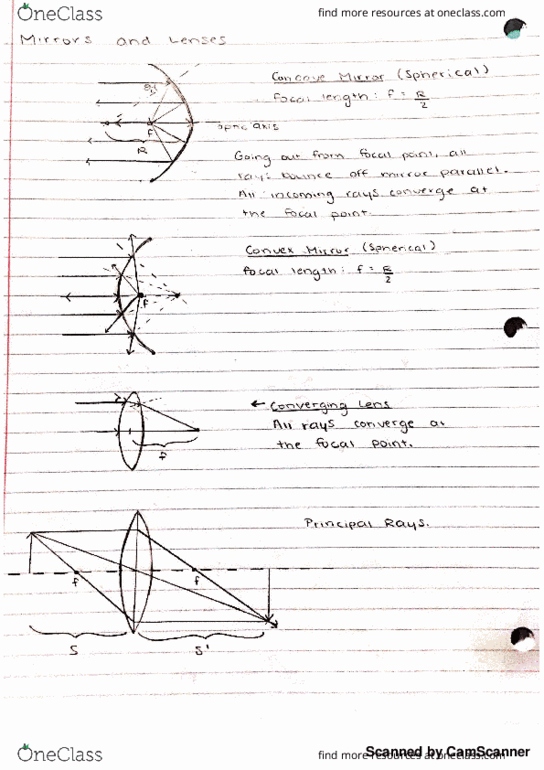 OneClass
find more resources at oneclass.com
Mirrors and Lenses
Concave Mirror (Spherical)
focal length: f = R/2
f
optic axis
R
Going out from focal point, all
rays bounce off mirror parallel.
All incoming rays converge at
the focal point.
Convex Mirror (Spherical)
focal length: f = R/2
f
← Converging Lens
All rays converge at
the focal point.
f
Principal Rays.
f
f
S
S'
Scanned by CamScanner
OneClass
find more resources at oneclass.com